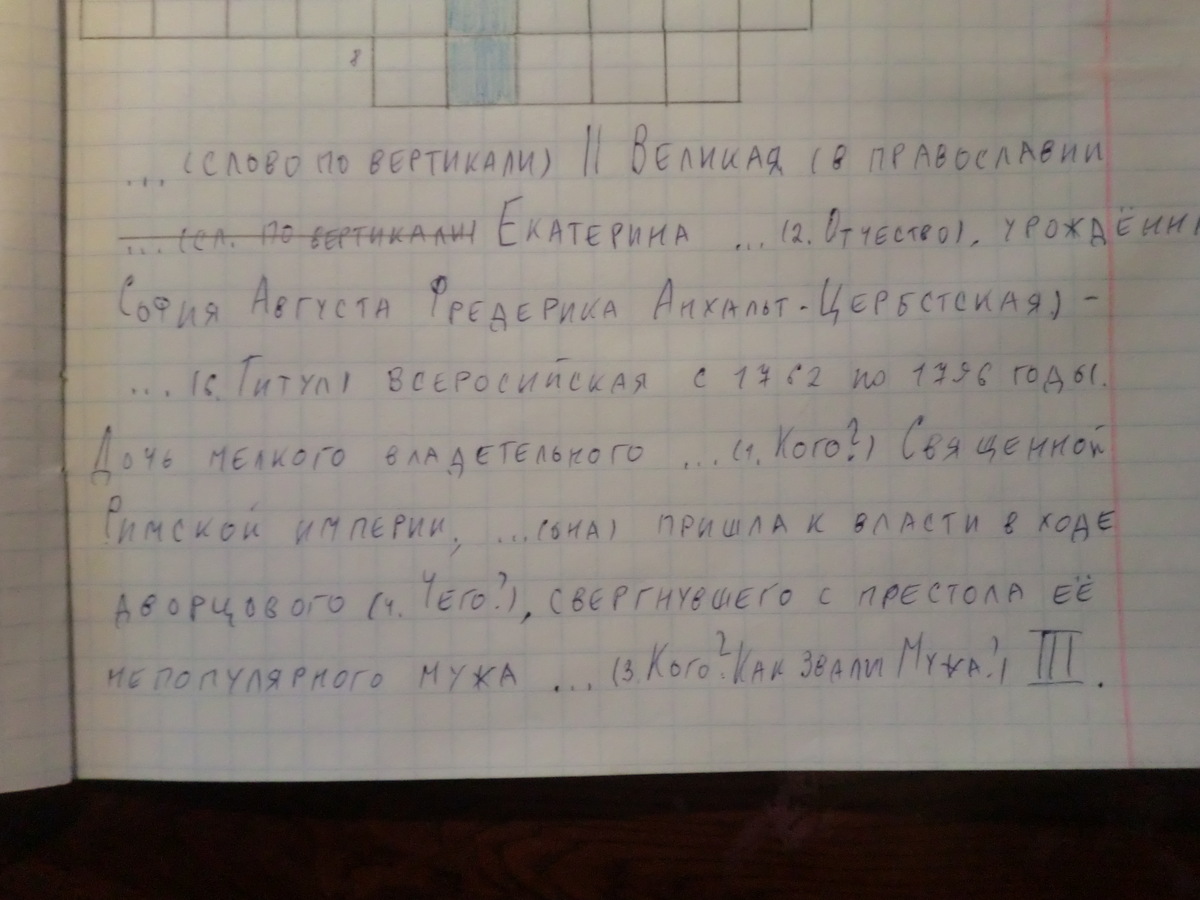 8
... (СЛОВО ПО ВЕРТИКАЛИ) II ВЕЛИКАЯ (В ПРАВОСЛАВИИ
... (СЛ. ПО ВЕРТИКАЛИ) ЕКАТЕРИНА ... (2. ОТЧЕСТВО), УРОЖДЁНН
СОФИЯ АВГУСТА ФРЕДЕРИКА АНХАЛЬТ-ЦЕРБСТСКАЯ) -
... (6. ТИТУЛ) ВСЕРОСИЙСКАЯ С 1762 ПО 1796 ГОДЫ.
ДОЧЬ МЕЛКОГО ВЛАДЕТЕЛЬНОГО ... (1. КОГО?) СВЯЩЕННОЙ
РИМСКОЙ ИМПЕРИИ, ... (ОНА) ПРИШЛА К ВЛАСТИ В ХОДЕ
ДВОРЦОВОГО (4. ЧЕГО?), СВЕРГНУВШЕГО С ПРЕСТОЛА ЕЁ
НЕПОПУЛЯРНОГО МУЖА ... (3. КОГО? КАК ЗВАЛИ МУЖА?) III.